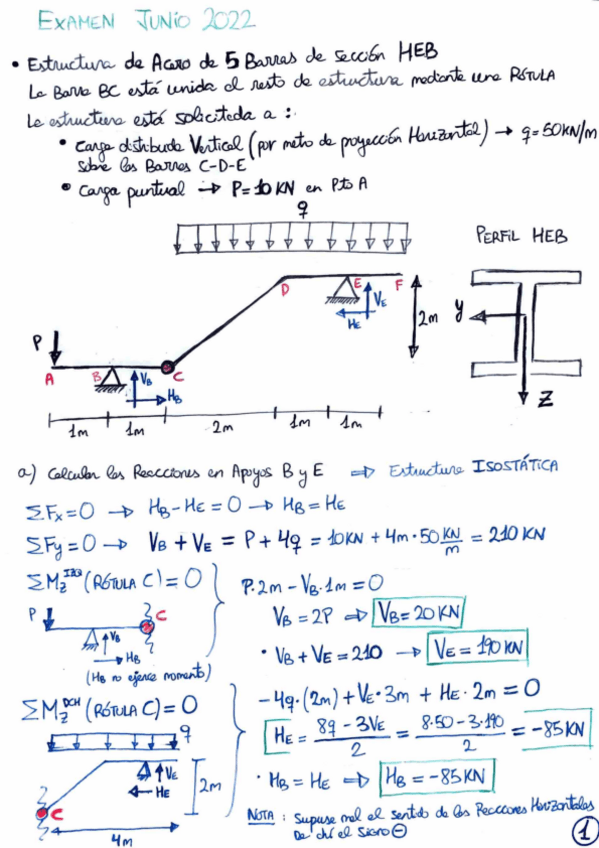 EXAMEN JUNIO 2022
• Estructura de Acero de 5 Barras de sección HEB
La Barra BC está unida al resto de estructura mediante una RÓTULA
La estructura está solicitada a :
• Carga distribuida Vertical (por metro de proyección Horizontal) → q = 50 KN/m
sobre las Barras C-D-E
• Carga puntual → P = 10 KN en Pto A
q
PERFIL HEB
D
E
F
VE
HE
2m
y
P
A
B
VB
C
HB
Z
1m 1m 2m 1m 1m
a) Calcular las Reacciones en Apoyos B y E ⇒ Estructura ISOSTÁTICA
ΣFx = 0 → HB - HE = 0 → HB = HE
ΣFy = 0 → VB + VE = P + 4q = 10KN + 4m · 50 KN/m = 210 KN
ΣMz^IZQ (RÓTULA C) = 0
P · 2m - VB · 1m = 0
P
C
VB
HB
(HB no ejerce momento)
VB = 2P ⇒ VB = 20 KN
• VB + VE = 210 → VE = 190 KN
ΣMz^DCH (RÓTULA C) = 0
-4q · (2m) + VE · 3m + HE · 2m = 0
q
HE = (8q - 3VE)/2 = (8·50 - 3·190)/2 = -85 KN
VE
HE
2m
C
4m
• HB = HE ⇒ HB = -85 KN
NOTA : Supuse mal el sentido de las Reacciones Horizontales
De ahí el signo ⊖
1